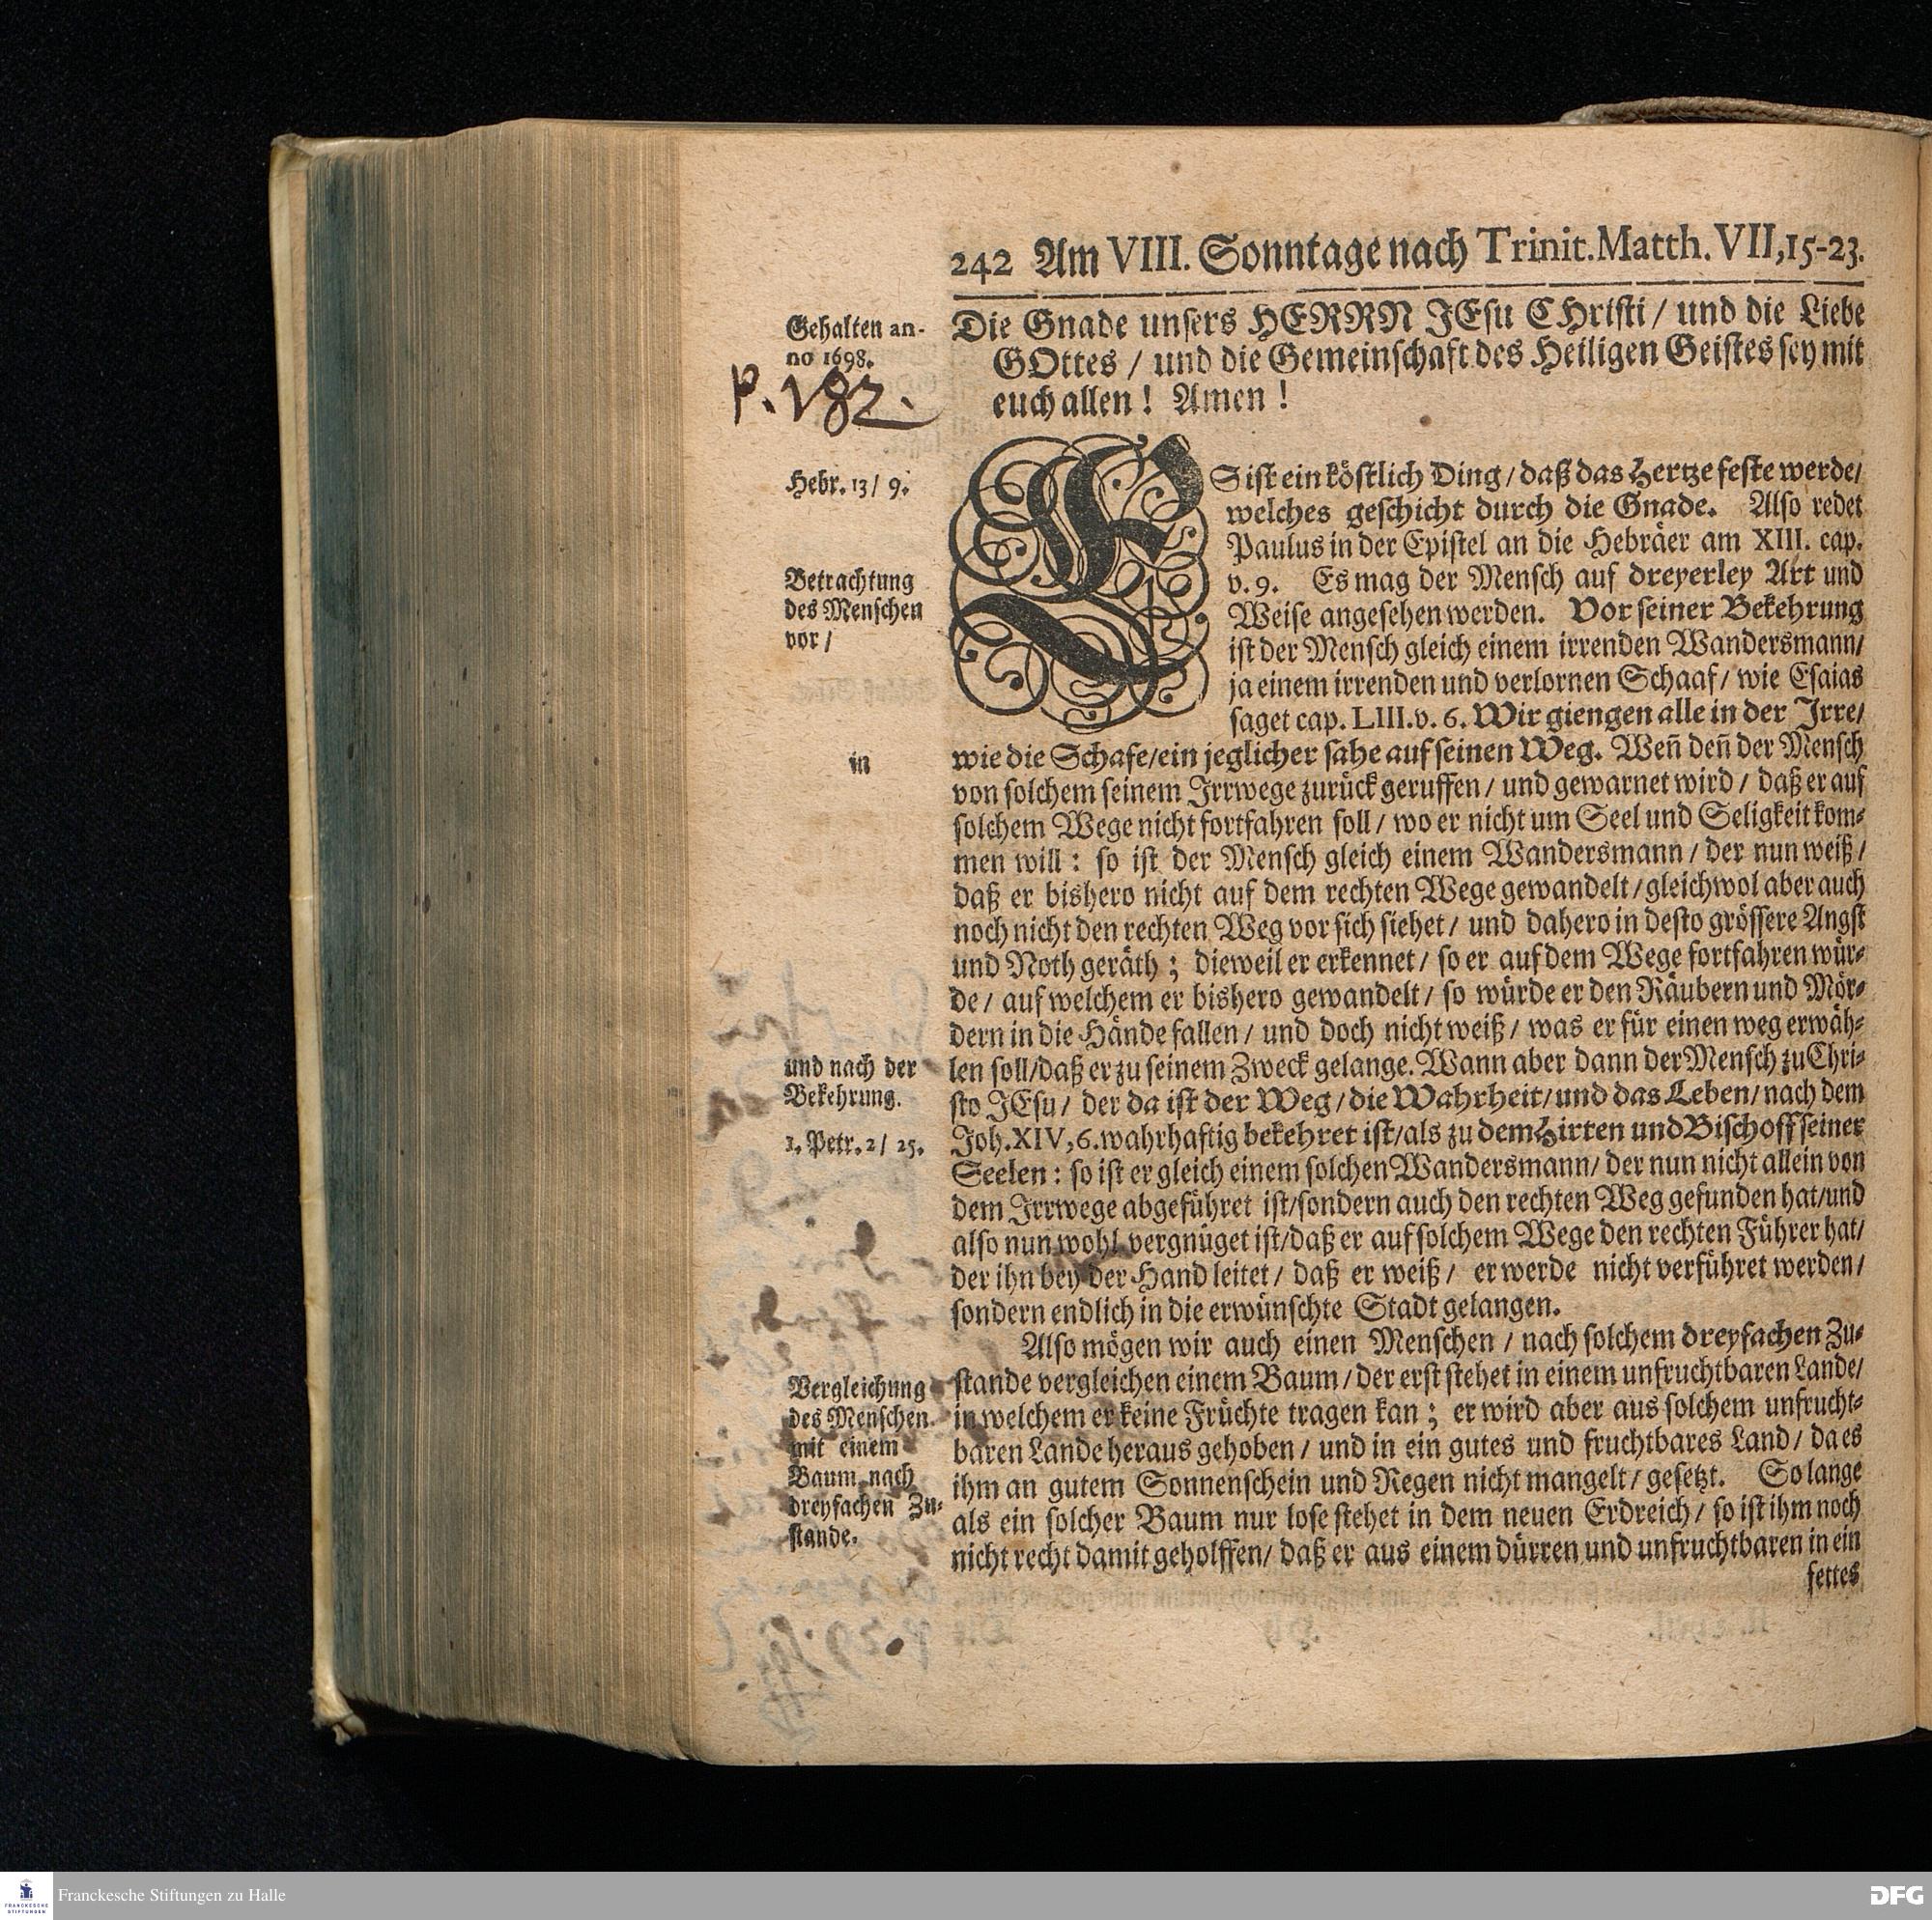 242 Am VIII. Sonntage nach Trinit. Matth. VII, 15-23.
Gehalten an-
no 1698.
p. 182.
Die Gnade unsers HERRN JEsu CHristi / und die Liebe
GOttes / und die Gemeinschaft des Heiligen Geistes sey mit
euch allen! Amen!
Hebr. 13/ 9.
ES ist ein köstlich Ding / daß das Hertze feste werde/
welches geschicht durch die Gnade. Also redet
Paulus in der Epistel an die Hebräer am XIII. cap.
v. 9. Es mag der Mensch auf dreyerley Art und
Betrachtung
des Menschen
vor /
Weise angesehen werden. Vor seiner Bekehrung
ist der Mensch gleich einem irrenden Wandersmann/
ja einem irrenden und verlornen Schaaf / wie Esaias
saget cap. LIII. v. 6. Wir giengen alle in der Irre/
in
wie die Schafe/ein jeglicher sahe auf seinen Weg. Weñ deñ der Mensch
von solchem seinem Irrwege zurück geruffen / und gewarnet wird / daß er auf
solchem Wege nicht fortfahren soll / wo er nicht um Seel und Seligkeit kom-
men will: so ist der Mensch gleich einem Wandersmann / der nun weiß /
daß er bishero nicht auf dem rechten Wege gewandelt / gleichwol aber auch
noch nicht den rechten Weg vor sich siehet / und dahero in desto grössere Angst
und Noth geräth; dieweil er erkennet / so er auf dem Wege fortfahren wür-
de / auf welchem er bishero gewandelt / so würde er den Räubern und Mör-
dern in die Hände fallen / und doch nicht weiß / was er für einen weg erwäh-
und nach der
Bekehrung.
len soll/daß er zu seinem Zweck gelange. Wann aber dann der Mensch zu Chri-
sto JEsu / der da ist der Weg / die Wahrheit/ und das Leben/ nach dem
1. Petr. 2/ 25.
Joh. XIV, 6. wahrhaftig bekehret ist/als zu dem Hirten und Bischoff seiner
Seelen: so ist er gleich einem solchen Wandersmann/ der nun nicht allein von
dem Irrwege abgeführet ist/sondern auch den rechten Weg gefunden hat/und
also nun wohl vergnüget ist/daß er auf solchem Wege den rechten Führer hat/
der ihn bey der Hand leitet / daß er weiß / er werde nicht verführet werden/
sondern endlich in die erwünschte Stadt gelangen.
Also mögen wir auch einen Menschen / nach solchem dreyfachen Zu-
Vergleichung
des Menschen
mit einem
Baum nach
dreyfachen Zu-
stande.
stande vergleichen einem Baum / der erst stehet in einem unfruchtbaren Lande/
in welchem er keine Früchte tragen kan; er wird aber aus solchem unfrucht-
baren Lande heraus gehoben / und in ein gutes und fruchtbares Land / da es
ihm an gutem Sonnenschein und Regen nicht mangelt / gesetzt. So lange
als ein solcher Baum nur lose stehet in dem neuen Erdreich / so ist ihm noch
nicht recht damit geholffen/ daß er aus einem dürren und unfruchtbaren in ein
fettes
Franckesche Stiftungen zu Halle
FRANCKESCHE
STIFTUNGEN
DFG